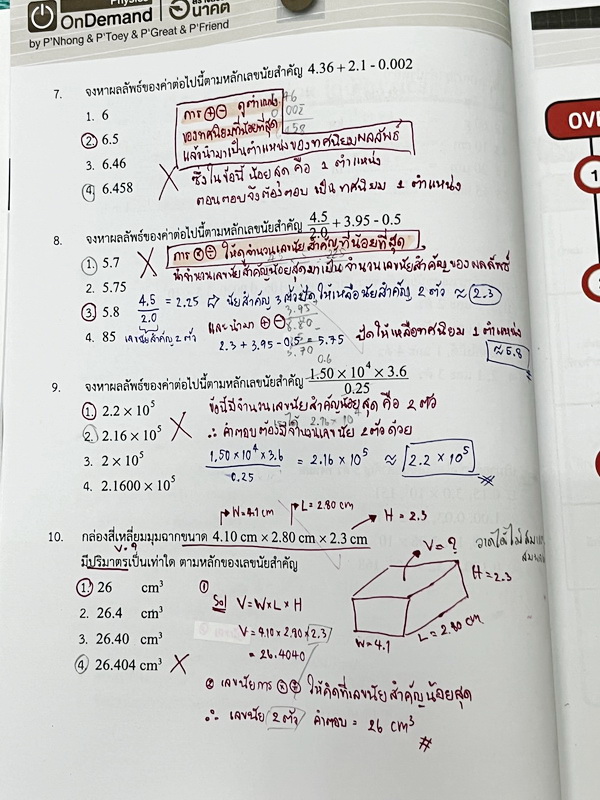 Physics
OnDemand
นาคต
by P'Nhong & P'Toey & P'Great & P'Friend
7. จงหาผลลัพธ์ของค่าต่อไปนี้ตามหลักเลขนัยสำคัญ 4.36 + 2.1 - 0.002
1. 6
2. 6.5
3. 6.46
4. 6.458
การ + - ดูตำแหน่ง
ของทศนิยมที่น้อยที่สุด
แล้วนำมาเป็นตำแหน่งของทศนิยมผลลัพธ์
ซึ่งในข้อนี้ น้อยสุด คือ 1 ตำแหน่ง
ตอนตอบจึงต้องตอบ เป็น ทศนิยม 1 ตำแหน่ง
8. จงหาผลลัพธ์ของค่าต่อไปนี้ตามหลักเลขนัยสำคัญ 4.5/2.0 + 3.95 - 0.5
1. 5.7
2. 5.75
3. 5.8
4. 85
การ × ÷ ให้ดูจำนวนเลขนัยสำคัญที่น้อยที่สุด
นำจำนวนเลขนัยสำคัญน้อยสุดมาเป็น จำนวนเลขนัยสำคัญของผลลัพธ์
4.5/2.0 = 2.25 นัยสำคัญ 3 ตัว ปัดให้เหลือนัยสำคัญ 2 ตัว ≈ 2.3
เลขนัยสำคัญ 2 ตัว
และนำมา + -
2.3 + 3.95 - 0.5 = 5.75 ปัดให้เหลือทศนิยม 1 ตำแหน่ง
≈ 5.8
0.6
9. จงหาผลลัพธ์ของค่าต่อไปนี้ตามหลักเลขนัยสำคัญ 1.50 × 10⁴ × 3.6/0.25
1. 2.2 × 10⁵
2. 2.16 × 10⁵
3. 2 × 10⁵
4. 2.1600 × 10⁵
ข้อนี้มีจำนวนเลขนัยสำคัญน้อยสุด คือ 2 ตัว
∴ คำตอบต้องมีจำนวนเลขนัย 2 ตัวด้วย
1.50 × 10⁴ × 3.6/0.25 = 2.16 × 10⁵ ≈ 2.2 × 10⁵
W = 4.1 cm L = 2.80 cm H = 2.3
10. กล่องสี่เหลี่ยมมุมฉากขนาด 4.10 cm × 2.80 cm × 2.3 cm
V = ?
มีปริมาตรเป็นเท่าใด ตามหลักของเลขนัยสำคัญ
1. 26 cm³
2. 26.4 cm³
3. 26.40 cm³
4. 26.404 cm³
① Sol V = W × L × H
V = 4.10 × 2.80 × 2.3
= 26.4040
② เลขนัยการ × ÷ ให้คิดที่เลขนัยสำคัญน้อยสุด
∴ เลขนัย 2 ตัว คำตอบ = 26 cm³
V = ?
H = 2.3
L = 2.80 cm
W = 4.1
OVE
1